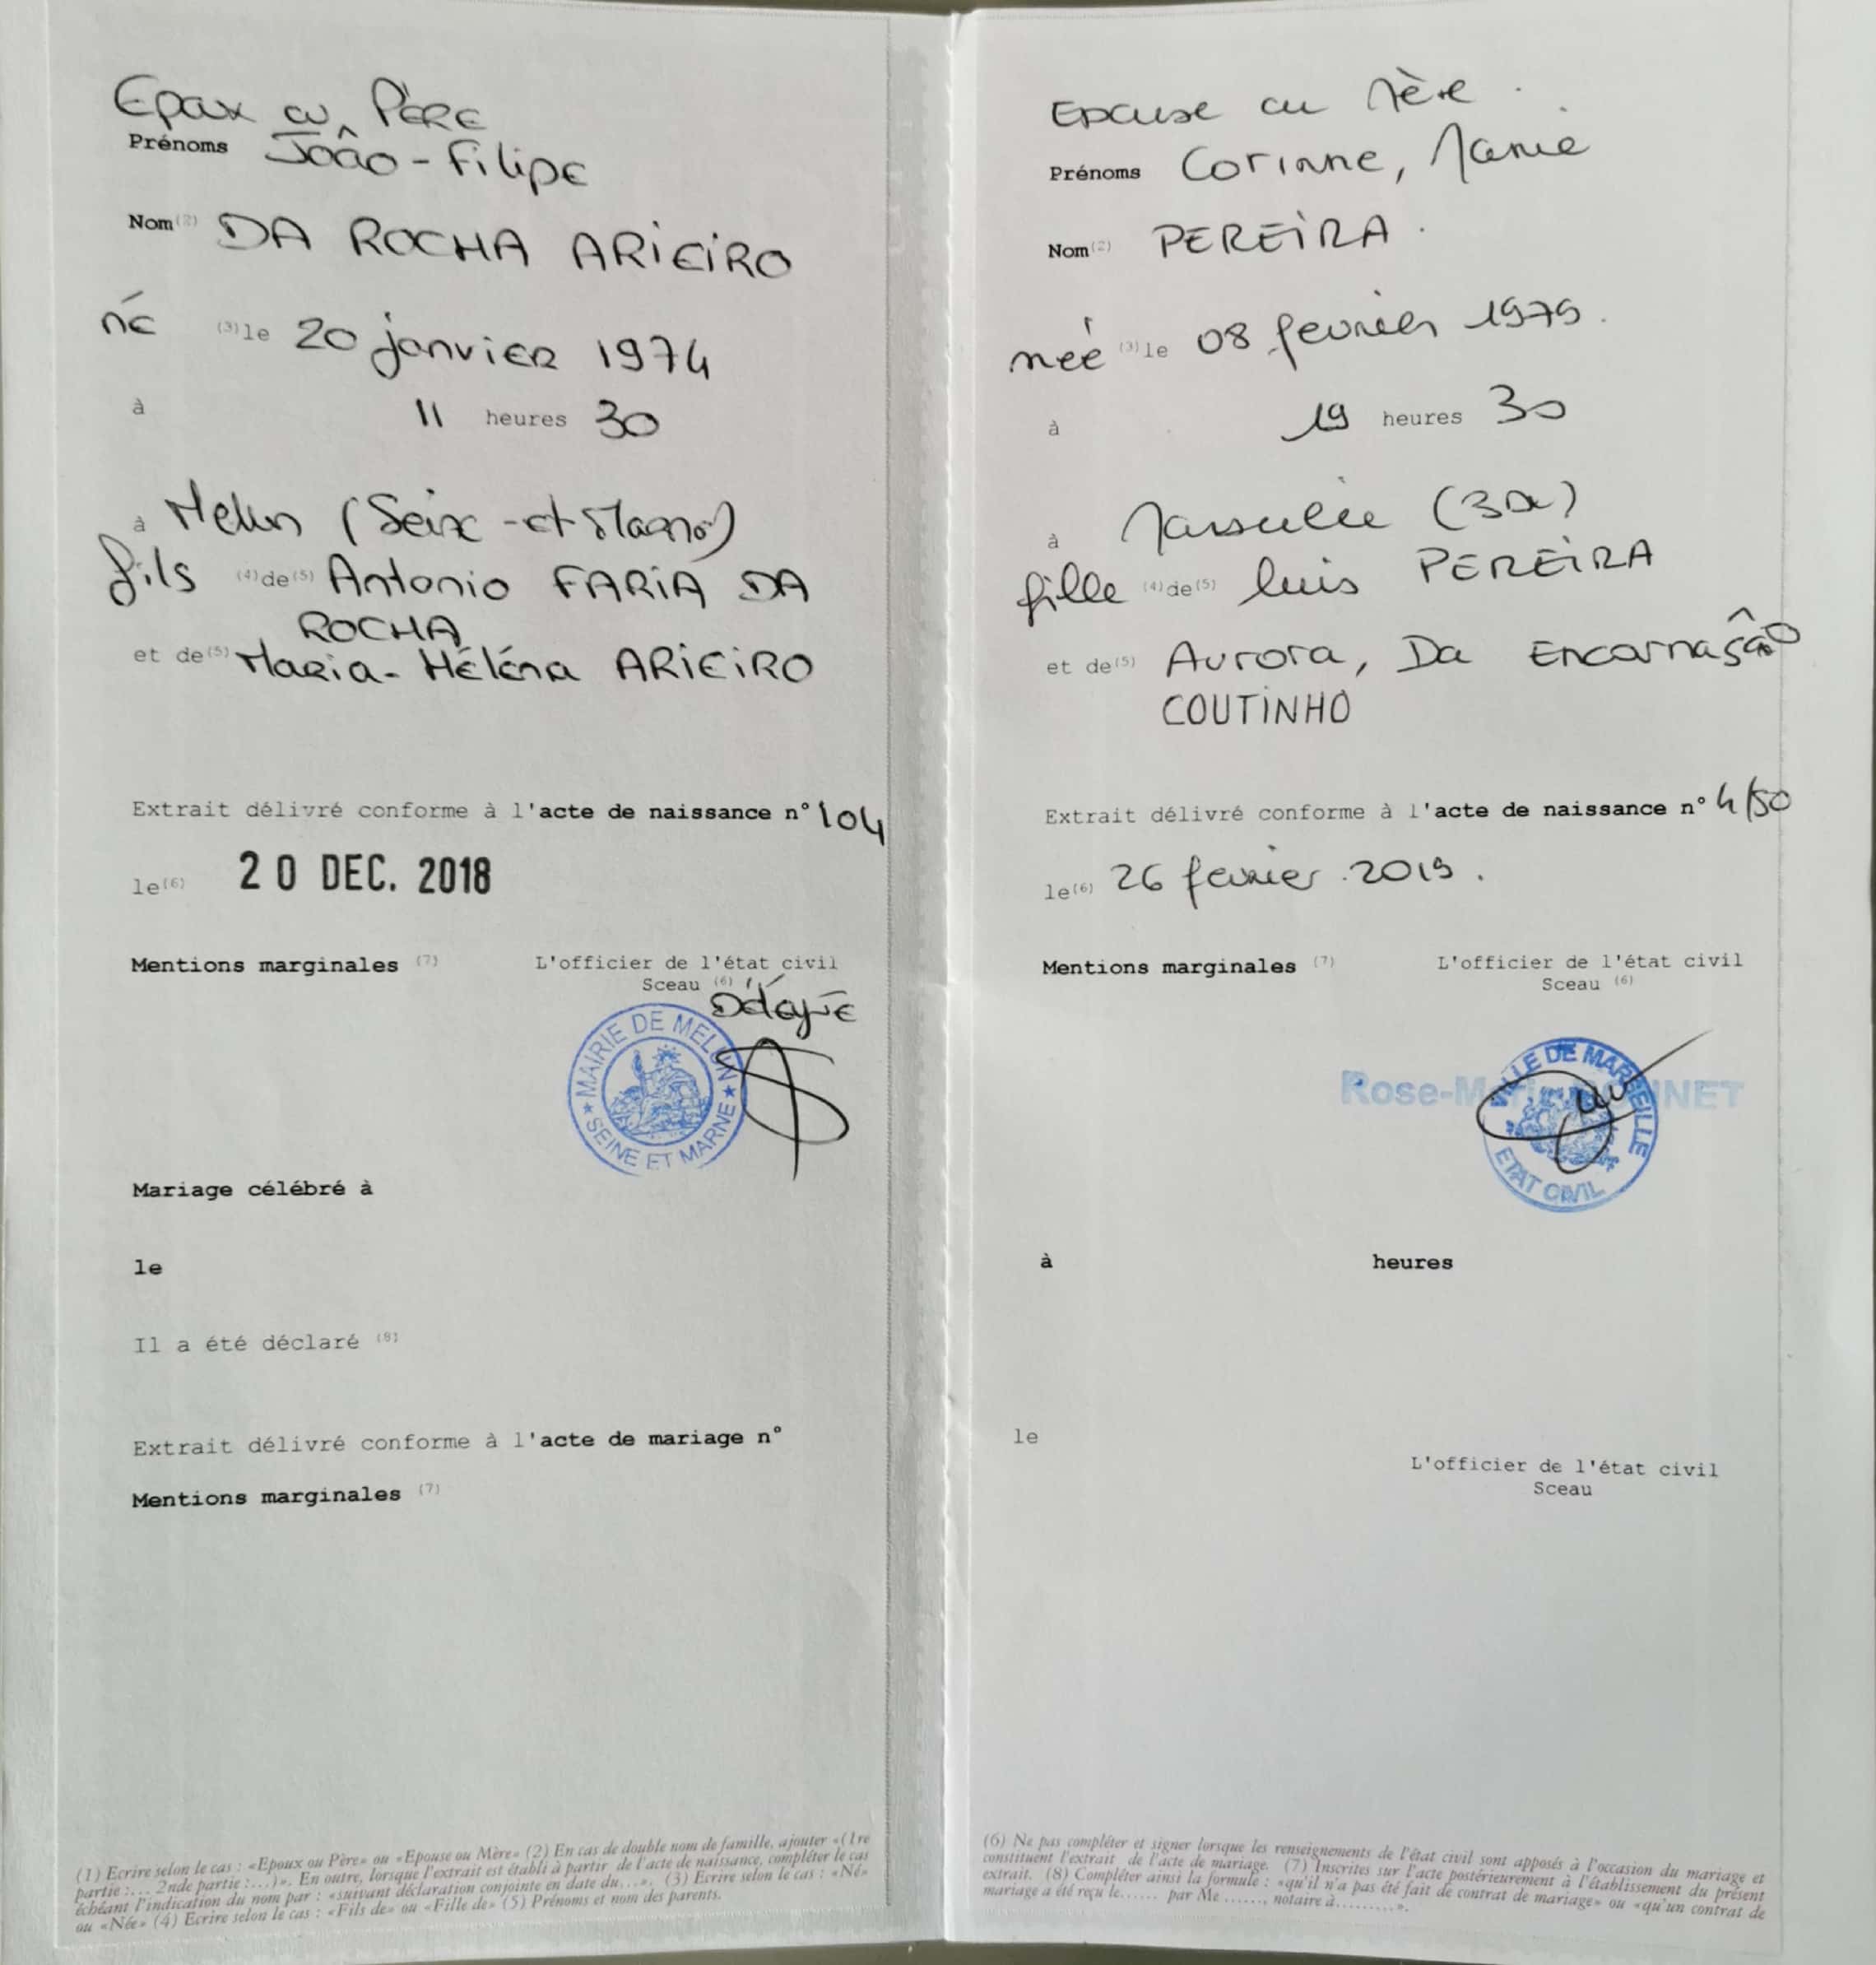 Epoux ou Père
Prénoms João-Filipe
Nom (2) DA ROCHA ARIEIRO
né (3) le 20 janvier 1974
à 11 heures 30
à Melun (Seine-et-Marne)
fils (4) de (5) Antonio FARIA DA
ROCHA
et de (5) Maria-Héléna ARIEIRO
Extrait délivré conforme à l'acte de naissance n° 104
le (6) 20 DEC. 2018
Mentions marginales (7)
L'officier de l'état civil
Sceau (6)
MAIRIE DE MELUN
SEINE ET MARNE
Mariage célébré à
le
Il a été déclaré (8)
Extrait délivré conforme à l'acte de mariage n°
Mentions marginales (7)
(1) Ecrire selon le cas : «Epoux ou Père» ou «Epouse ou Mère» (2) En cas de double nom de famille, ajouter «(1re
partie :... 2nde partie :...)». En outre, lorsque l'extrait est établi à partir de l'acte de naissance, compléter le cas
échéant l'indication du nom par : «suivant déclaration conjointe en date du...». (3) Ecrire selon le cas : «Né»
ou «Née» (4) Ecrire selon le cas : «Fils de» ou «Fille de» (5) Prénoms et nom des parents.
Epouse ou Mère
Prénoms Corinne, Marie
Nom (2) PEREIRA
née (3) le 08 février 1979
à 19 heures 30
à Marseille
fille (4) de (5) luis PEREIRA
et de (5) Aurora, Da Encarnasão
COUTINHO
Extrait délivré conforme à l'acte de naissance n° 4/50
le (6) 26 fevrier 2019.
Mentions marginales (7)
L'officier de l'état civil
Sceau (6)
VILLE DE MARSEILLE
ETAT CIVIL
à heures
le
L'officier de l'état civil
Sceau
(6) Ne pas compléter et signer lorsque les renseignements de l'état civil sont apposés à l'occasion du mariage et
constituent l'extrait de l'acte de mariage. (7) Inscrites sur l'acte postérieurement à l'établissement du présent
extrait. (8) Compléter ainsi la formule : «qu'il n'a pas été fait de contrat de mariage» ou «qu'un contrat de
mariage a été reçu le...... par Me ......., notaire à.........».